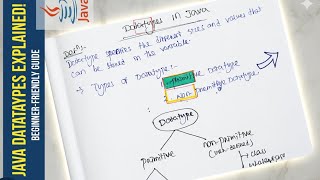 JAVA DATATYPES EXPLAINED!
BEGINNER-FRIENDLY GUIDE
Java
Datatypes in Java
Defn:
Datatype specifies the different sizes and values that
can be stored in the variable.
→ Types of Datatype:
primitive Datatype
non primitive Datatype.
Datatype
primitive
non-primitive
→ class